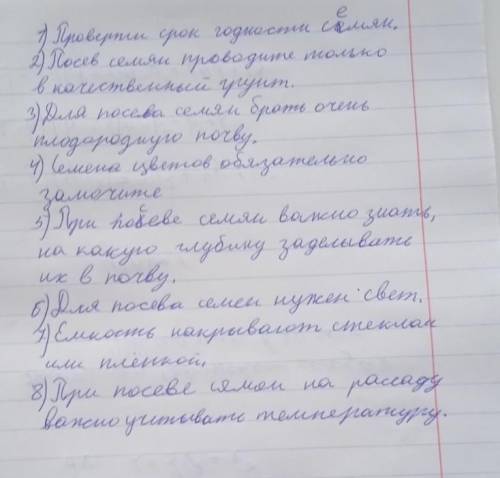 1) Проверти срок годности семян.
2) Посев семян проводите только
в качественный грунт.
3) Для посева семян брать очень
плодородную почву.
4) Семена цветов обязательно
замочите
5) При посеве семян важно знать,
на какую глубину заделывать
их в почву.
6) Для посева семен нужен свет.
7) Емкость накрывают стеклом
или плёнкой.
8) При посеве семян на рассаду
важно учитывать температуру.